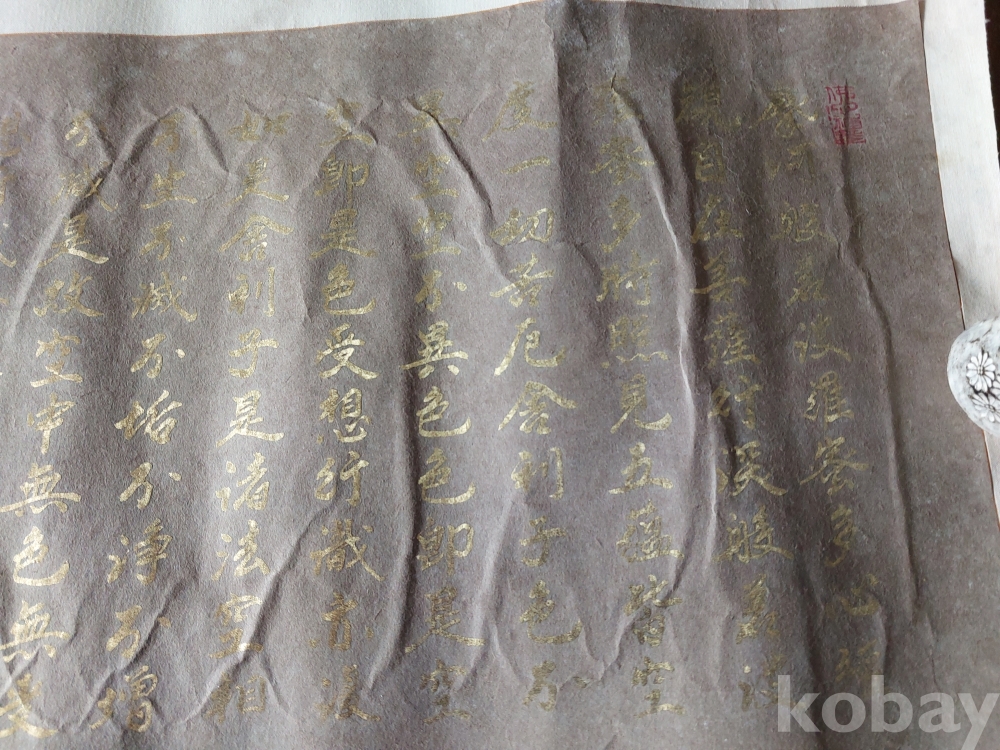 摩訶般若波羅蜜多心經
觀自在菩薩行深般若波
羅蜜多時照見五蘊皆空
度一切苦厄舍利子色不
異空空不異色色即是空
空即是色受想行識亦復
如是舍利子是諸法空相
不生不滅不垢不淨不增
不減是故空中無色無受
kobay